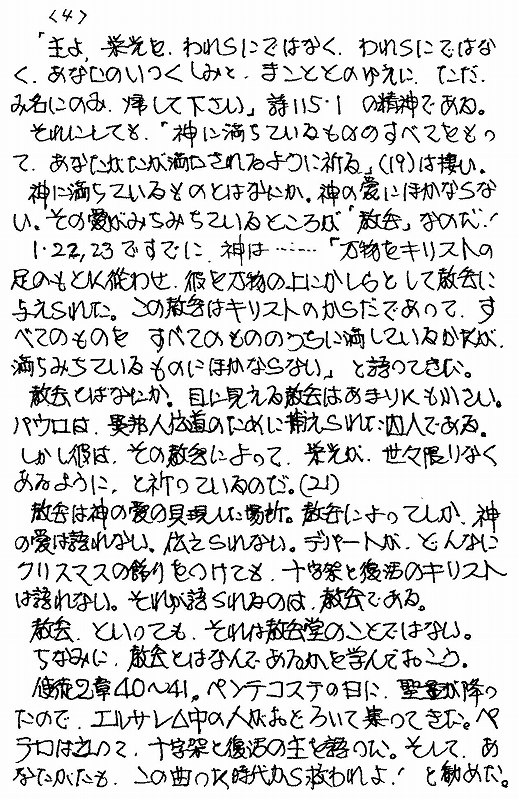 <4>
「主よ、栄光を、われらにではなく、われらにではな
く、あなたのいつくしみと、まこととのゆえに、ただ、
み名にのみ、帰して下さい」詩115・1 の精神である。
それにしても、「神に満ちているもののすべてをもっ
て、あなたがたが満たされるように祈る」(19)は凄い。
神に満ちているものとはなにか。神の愛にほかならな
い。その愛がみちみちているところが「教会」なのだ!
1・22,23ですでに、神は……「万物をキリストの
足のもとに従わせ、彼を万物の上にかしらとして教会に
与えられた。この教会はキリストのからだであって、す
べてのものを すべてのもののうちに満しているかたが、
満ちみちているものにほかならない」と語ってきた。
教会とはなにか。目に見える教会はあまりにも小さい。
パウロは、異邦人伝道のために捕えられた囚人である。
しかし彼は、その教会によって、栄光が、世々限りなく
あるように、と祈っているのだ。(21)
教会は神の愛の具現した場所。教会によってしか、神
の愛は語れない。伝えられない。デパートが、どんなに
クリスマスの飾りをつけても、十字架と復活のキリスト
は語れない。それが語られるのは、教会である。
教会、といっても、それは教会堂のことではない。
ちなみに、教会とはなんであるかを学んでおこう。
使徒2章40〜41。ペンテコステの日に、聖霊が降っ
たので、エルサレム中の人がおどろいて集ってきた。ペ
テロは立って、十字架と復活の主を語った。そして、あ
なたがたも、この曲った時代から救われよ!と勧めた。